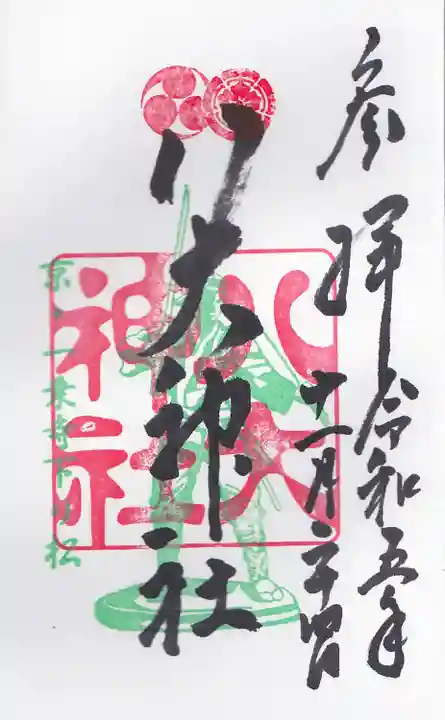 参拝 令和五年
十一月二十四日
八大神社
八大
神社
京・一乗寺下り松